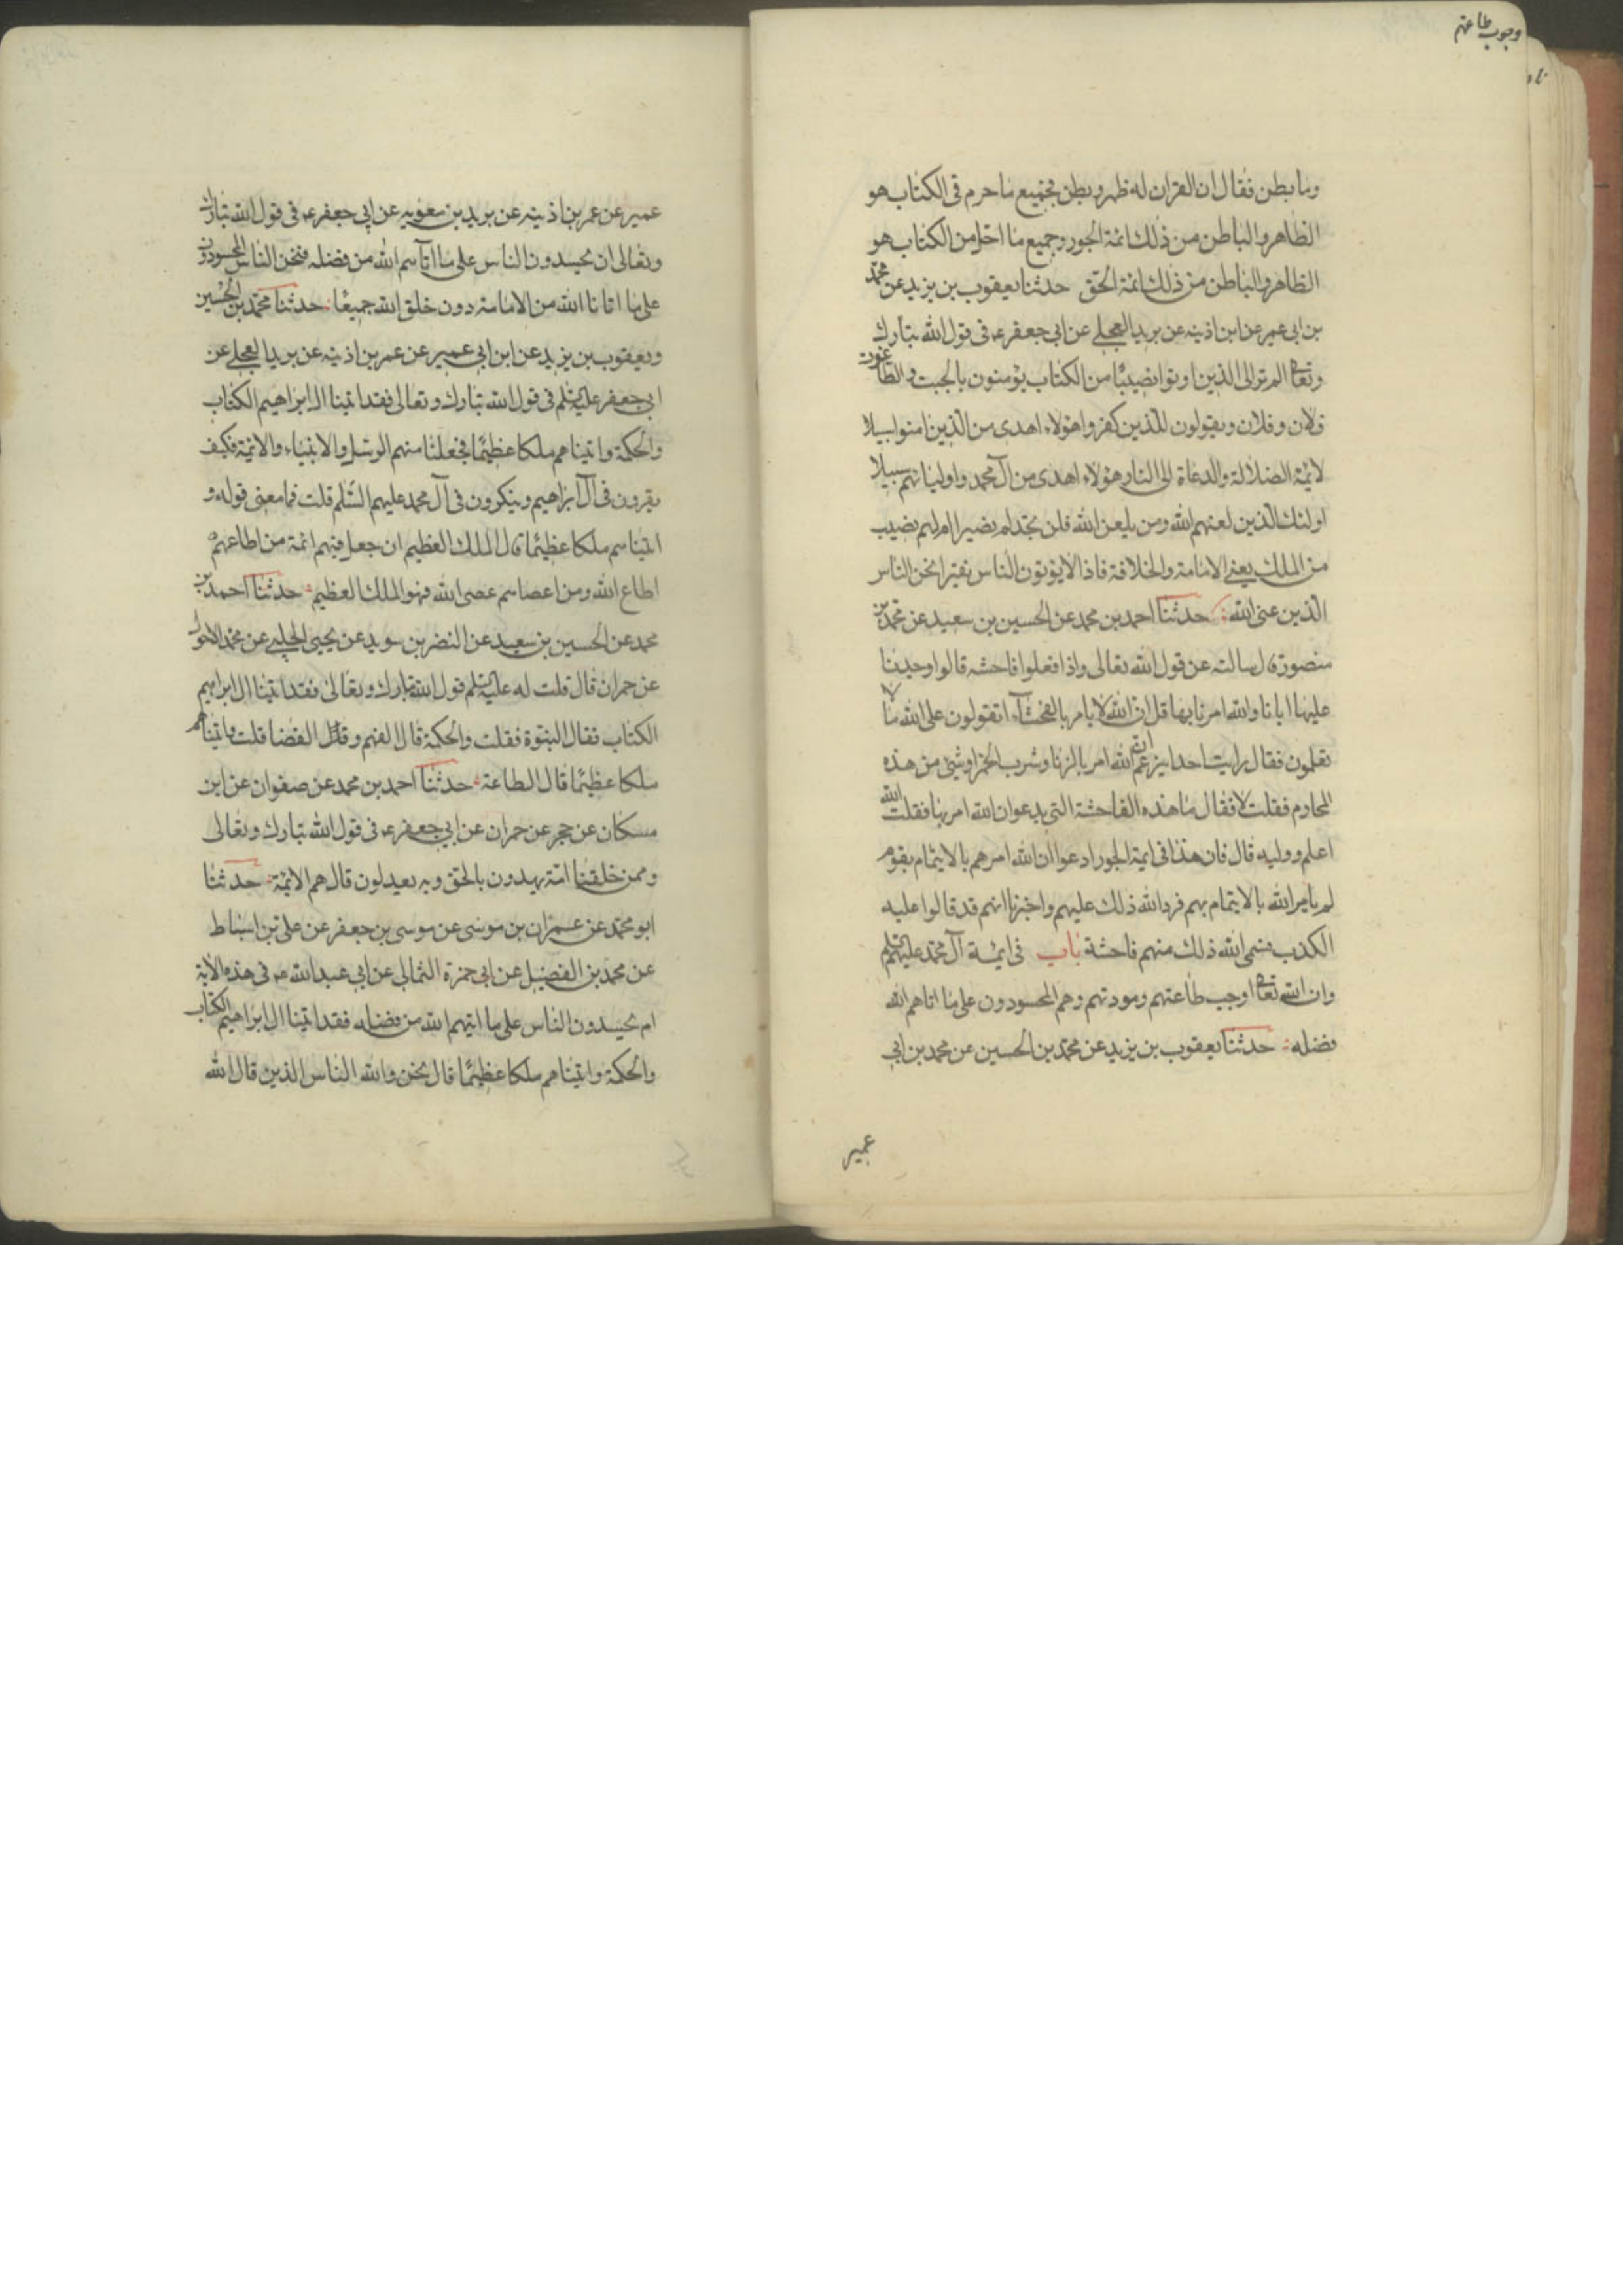 وجوب طاعتهم
وما بطن فقال ان القران له ظهر وبطن فجميع ما حرم في الكتاب هو
الظاهر والباطن من ذلك ائمة الجور وجميع ما احل من الكتاب هو
الظاهر والباطن من ذلك ائمة الحق حدثنا يعقوب بن يزيد عن محمد
بن ابي عمير عن ابن اذينه عن بريد العجلي عن ابي جعفر ع في قول الله تبارك
وتعالى الم تر الى الذين اوتوا نصيبا من الكتاب يؤمنون بالجبت والطاغوت
فلان وفلان ويقولون للذين كفروا هؤلاء اهدى من الذين امنوا سبيلا
لائمة الضلالة والدعاة الى النار هؤلاء اهدى من آل محمد واوليائهم سبيلا
اولئك الذين لعنهم الله ومن يلعن الله فلن تجد له نصيرا ام لهم نصيب
من الملك يعني الامامة والخلافة فاذا لا يؤتون الناس نقيرا نحن الناس
الذين عنى الله حدثنا احمد بن محمد عن الحسين بن سعيد عن محمد بن
منصور قال سالته عن قول الله تعالى واذا فعلوا فاحشه قالوا وجدنا
عليها ابانا والله امرنا بها قل ان الله لا يامر بالفحشآء اتقولون على الله ما لا
تعلمون فقال رايت احدا يزعم ان الله امر بالزنا وشرب الخمر او شئ من هذه
المحارم فقلت لا فقال ما هذه الفاحشة التي يدعو ان الله امر بها فقلت الله
اعلم ووليه قال فان هذا في ايمة الجور ادعوا ان الله امرهم بالايتمام بقوم
لم يامر الله بالايتمام بهم فرد الله ذلك عليهم واخبرنا انهم قد قالوا عليه
الكذب فسمى الله ذلك منهم فاحشة باب في ايمة آل محمد عليهم السلم
وان الله تعالى اوجب طاعتهم ومودتهم وهم المحسودون على ما اتاهم الله
فضله حدثنا يعقوب بن يزيد عن محمد بن الحسين عن محمد بن ابي
عمير
عمير عن عمر بن اذينه عن بريد بن معويه عن ابي جعفر ع في قول الله تبارك
وتعالى ان يحسدون الناس على ما اتآهم الله من فضله فنحن الناس المحسودون
على ما اتانا الله من الامامة دون خلق الله جميعا حدثنا محمد بن الحسين
ويعقوب بن يزيد عن ابن ابي عمير عن عمر بن اذينه عن بريد العجلي عن
ابي جعفر عليه السلم في قول الله تبارك وتعالى فقد اتينا ال ابراهيم الكتاب
والحكمة واتيناهم ملكا عظيما فجعلنا منهم الرسل والانبياء والائمة فكيف
يقرون في آل ابراهيم وينكرون في آل محمد عليهم السلم قلت فما معنى قوله و
اتيناهم ملكا عظيما قال الملك العظيم ان جعل فيهم ائمة من اطاعهم
اطاع الله ومن اعصاهم عصى الله فهو الملك العظيم حدثنا احمد بن
محمد عن الحسين بن سعيد عن النضر بن سويد عن يحيى الحلبي عن محمد الاحول
عن حمران قال قلت له عليه السلم قول الله تبارك وتعالى فقد اتينا ال ابراهيم
الكتاب فقال النبوة فقلت والحكمة قال الفهم وقال القضا قلت واتيناهم
ملكا عظيما قال الطاعة حدثنا احمد بن محمد عن صفوان عن ابن
مسكان عن حجر عن حمران عن ابي جعفر ع في قول الله تبارك وتعالى
وممن خلقنا امة يهدون بالحق وبه يعدلون قال هم الائمة حدثنا
ابو محمد عن عمران بن موسى عن موسى بن جعفر عن علي بن اسباط
عن محمد بن الفضيل عن ابي حمزة الثمالي عن ابي عبد الله ع في هذه الاية
ام يحسدون الناس على ما اتيهم الله من فضله فقد اتينا ال ابراهيم الكتاب
والحكمة واتيناهم ملكا عظيما قال نحن والله الناس الذين قال الله